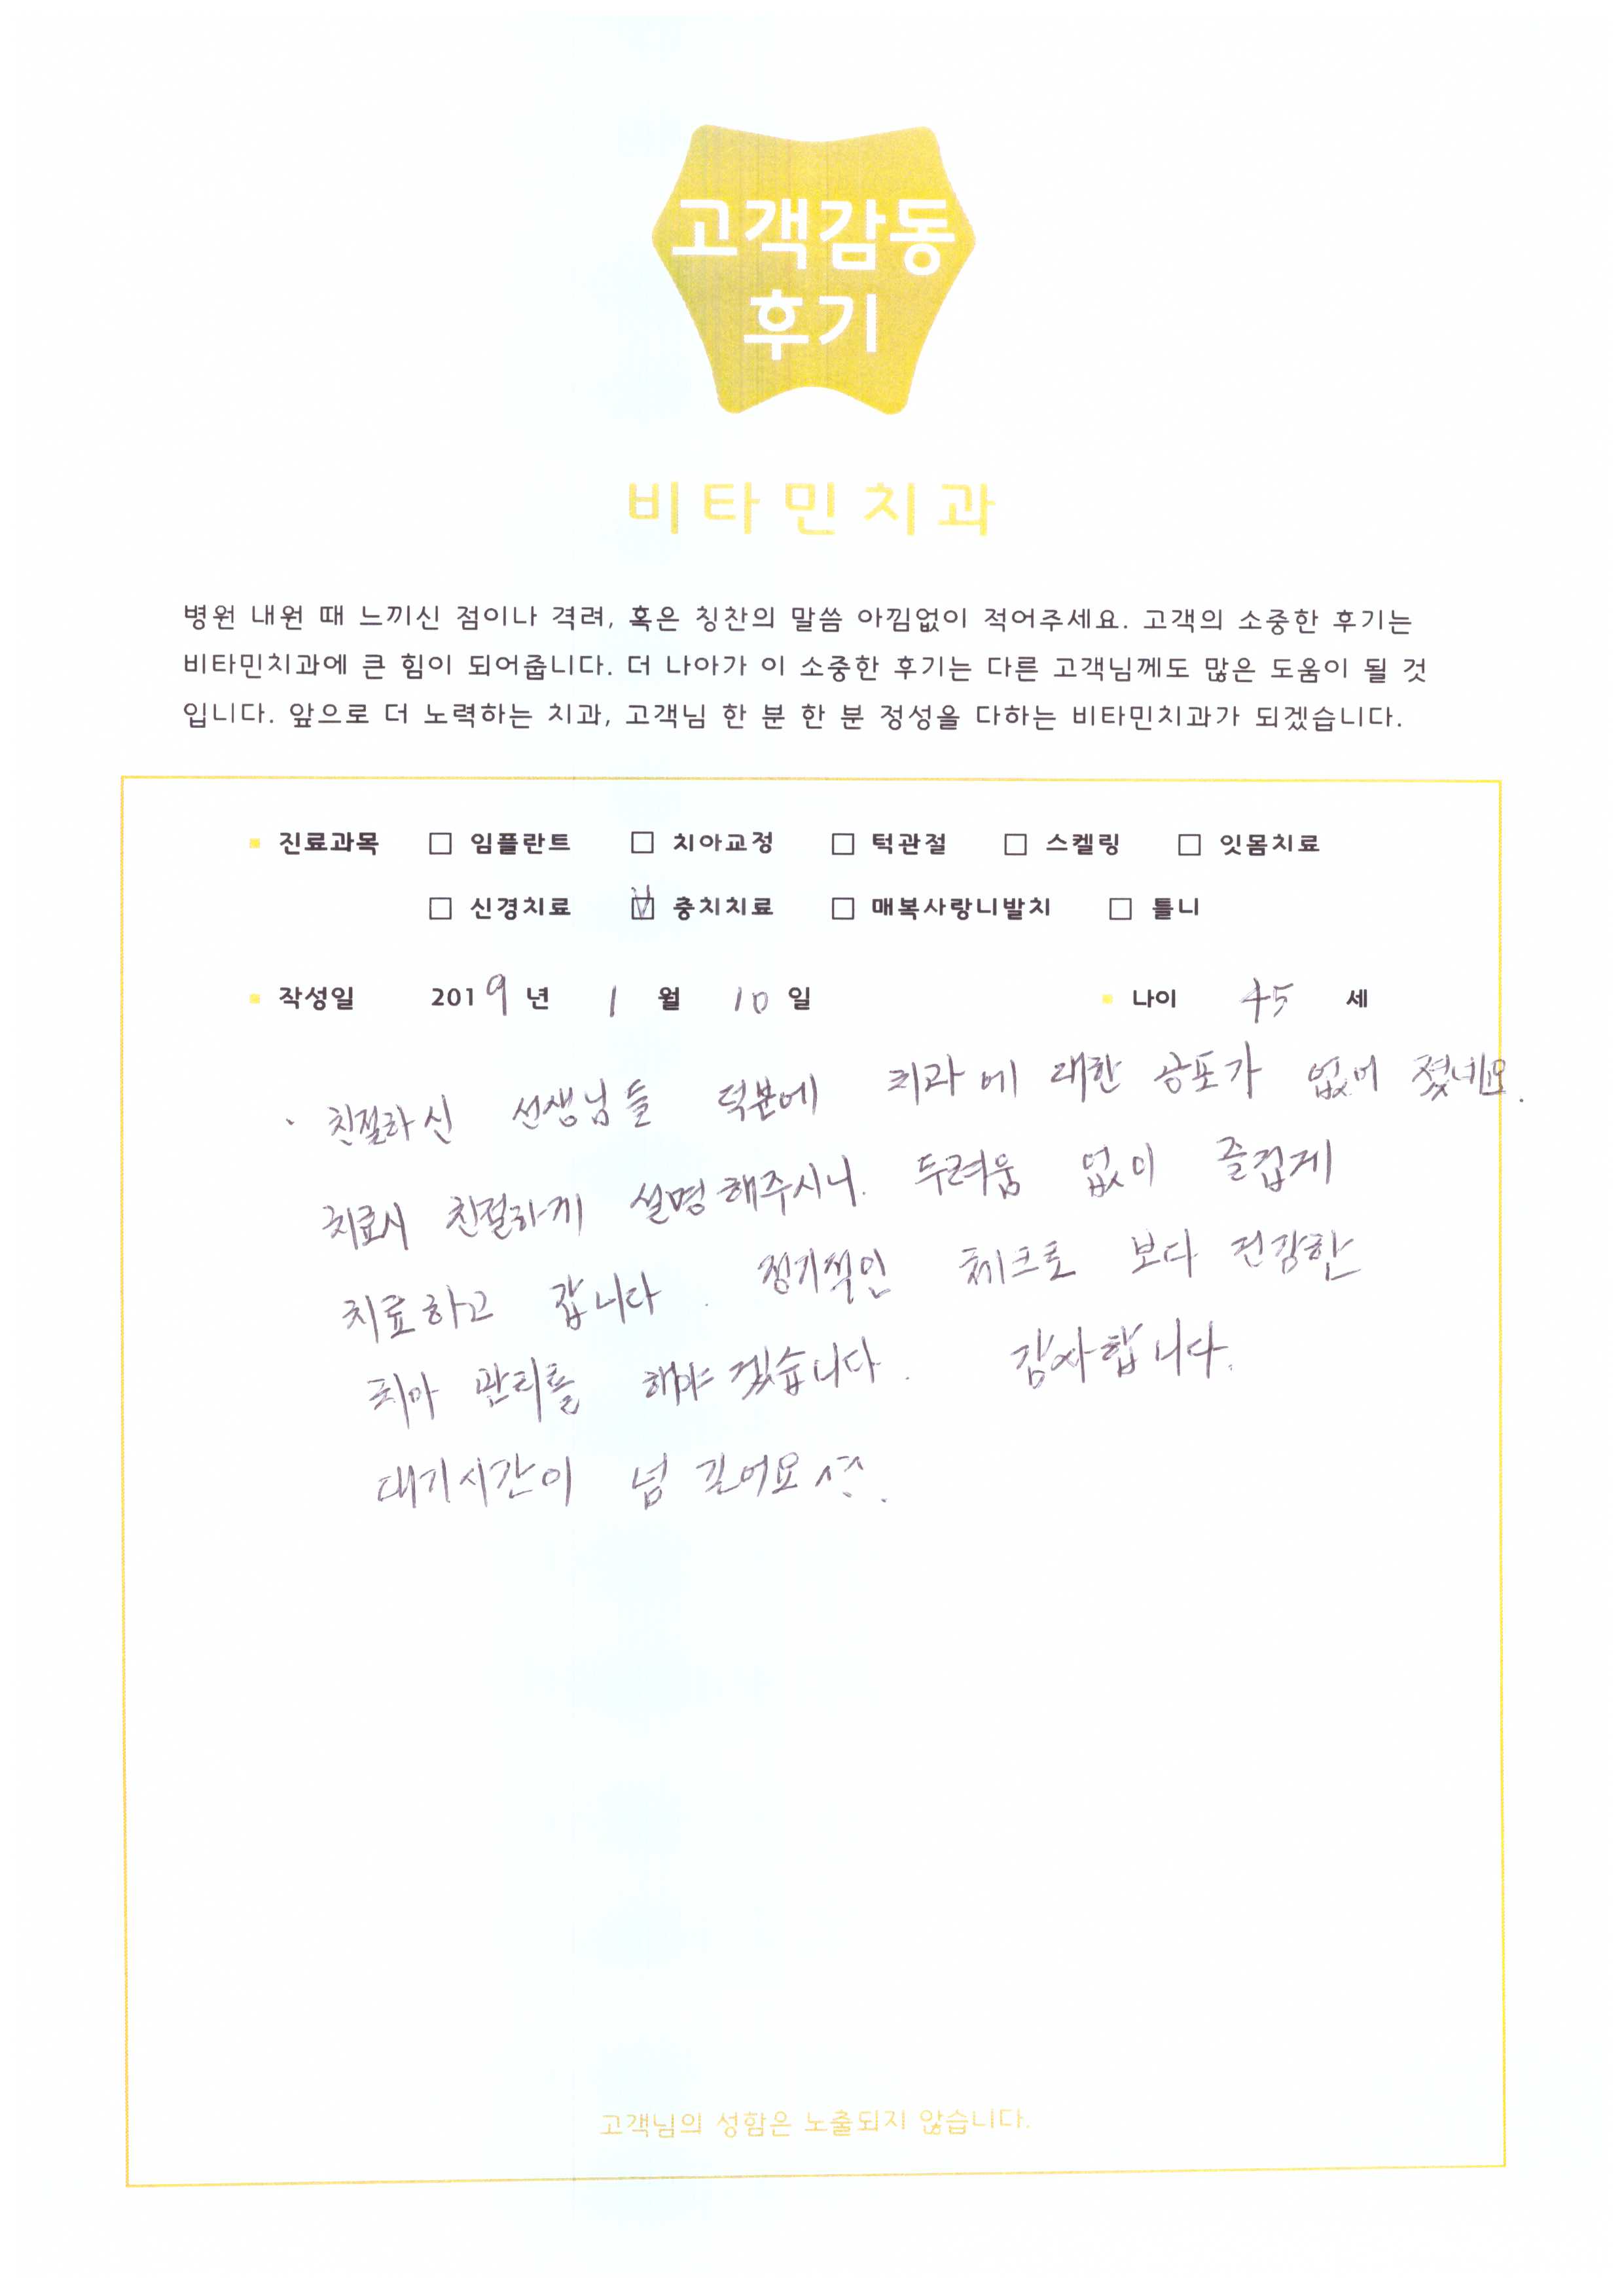 고객감동
후기
비타민치과
병원 내원 때 느끼신 점이나 격려, 혹은 칭찬의 말씀 아낌없이 적어주세요. 고객의 소중한 후기는
비타민치과에 큰 힘이 되어줍니다. 더 나아가 이 소중한 후기는 다른 고객님께도 많은 도움이 될 것
입니다. 앞으로 더 노력하는 치과, 고객님 한 분 한 분 정성을 다하는 비타민치과가 되겠습니다.
진료과목 □ 임플란트 □ 치아교정 □ 턱관절 □ 스켈링 □ 잇몸치료
□ 신경치료 ☑ 충치치료 □ 매복사랑니발치 □ 틀니
작성일 2019년 1월 10일 나이 45 세
친절하신 선생님들 덕분에 치과에 대한 공포가 없어 졌네요.
치료시 친절하게 설명해주시니. 두려움 없이 즐겁게
치료하고 갑니다. 정기적인 체크로 보다 건강한
치아 관리를 해야 겠습니다. 감사합니다.
대기시간이 넘 길어요 ^^.
고객님의 성함은 노출되지 않습니다.